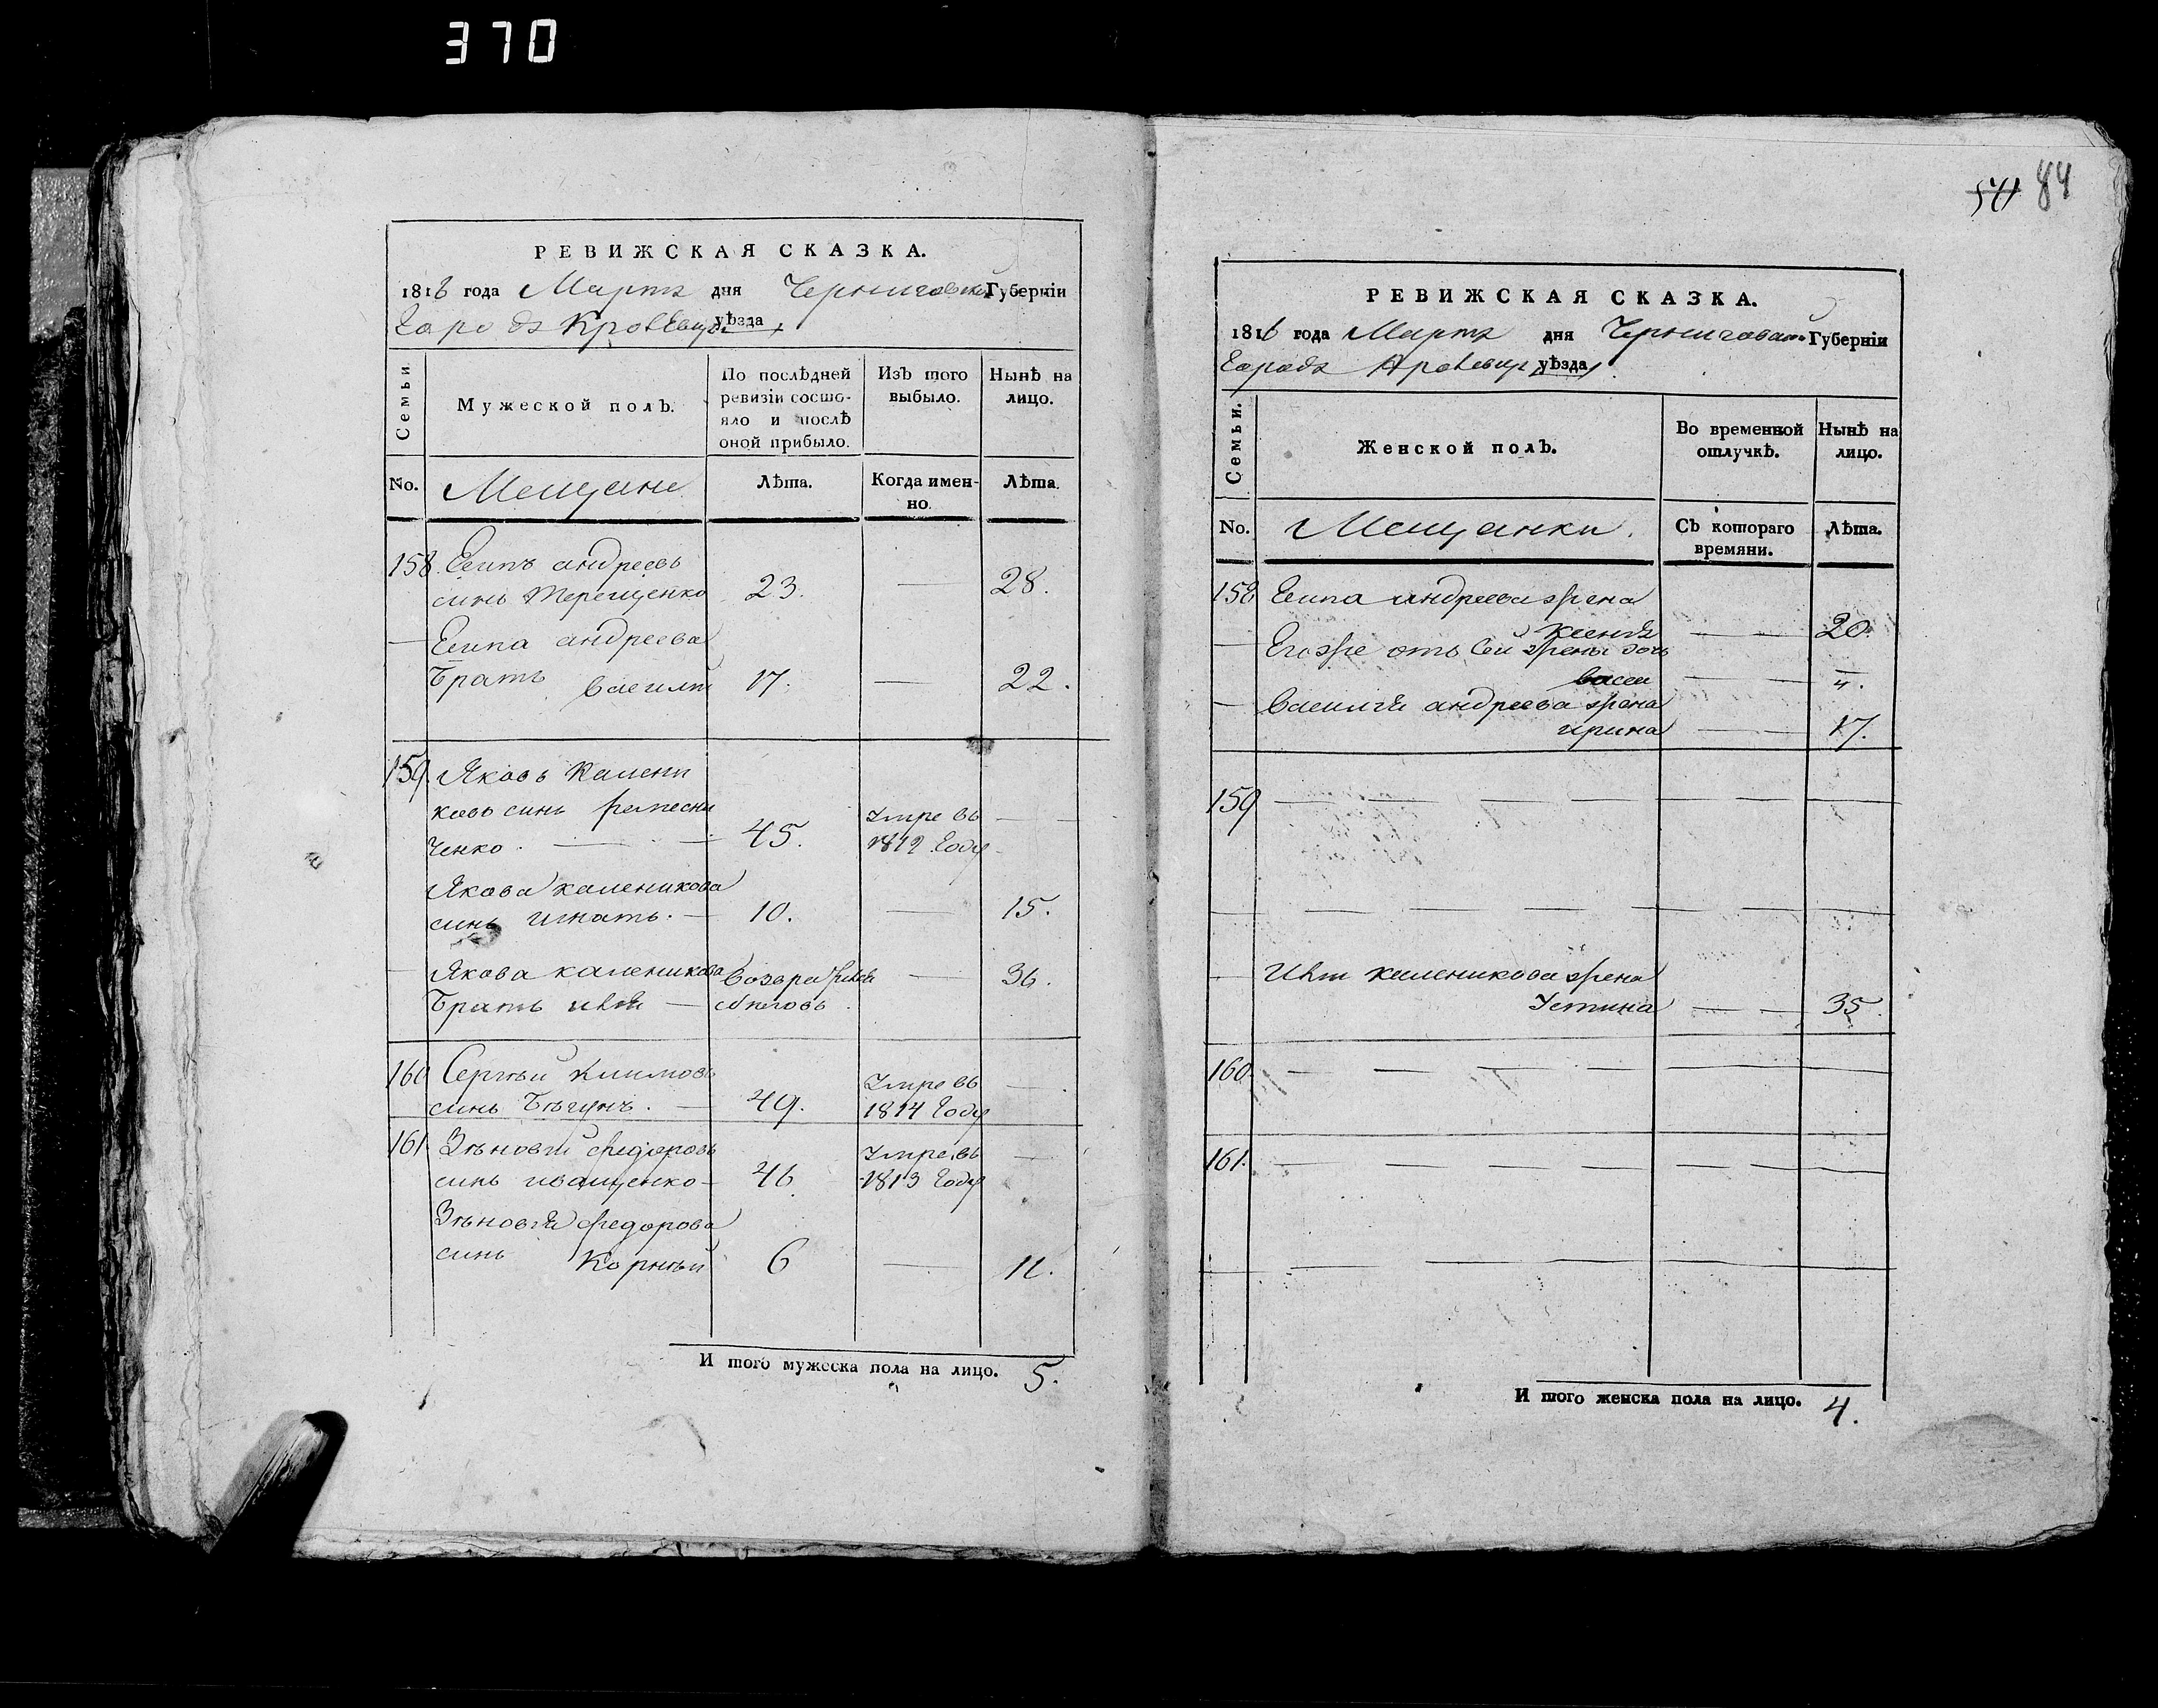 370
РЕВИЖСКАЯ СКАЗКА.
1816 года Марта дня Черниговской Губерніи
Города Кролевца уѣзда
Семьи.
Мужеской полъ.
По послѣдней ревизіи состо-
яло и послѣ оной прибыло.
Изъ того выбыло.
Ныне на лицо.
No.
Мещане
Лѣта.
Когда имен-
но.
Лѣта.
158. Есипъ андреевъ
синъ Терещенко 23. — 28.
— Есипа андреева
Братъ василий 17. — 22.
159. Яковъ Калени
ковъ синъ
ченко. — 45. Умре въ 1812 Году —
Якова каленикова
синъ игнатъ. — 10. — 15.
— Якова каленикова
Братъ — — 36.
160 Сергѣй Климовъ
синъ Бѣгунъ. — 49. Умре въ 1814 Году —
161. Зѣновий федоровъ
синъ иващенко — 46 Умре въ 1813 Году —
Зѣновия федорова
синъ Корнѣй 6 — 11.
И того мужеска пола на лицо. 5.
84
РЕВИЖСКАЯ СКАЗКА.
1816 года Марта дня Черниговской Губерніи
Города Кролевца уѣзда
Семьи.
Женской полъ.
Во временной отлучкѣ.
Нынѣ на лицо.
No.
Мещанки.
Съ котораго времяни.
Лѣта.
158 Есипа андреева жена
— — 20.
— Егоже отъ сей жены дочь
— — 4.
— Василия андреева жена
ирина — — 17.
159 — — — — — — —
— — — — — — —
— каленикова жена
Устина — — 35.
160. — — — — — — —
161. — — — — — — —
— — — — — —
И того женска пола на лицо. 4.